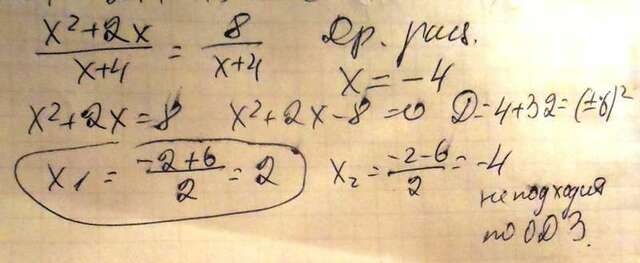 (x²+2x)/(x+4) = 8/(x+4) Др. рац.
x = -4
x²+2x=8 x²+2x-8=0 D=4+32=(±6)²
x₁ = (-2+6)/2 = 2 x₂ = (-2-6)/2 = -4
не подходит
по ОДЗ.